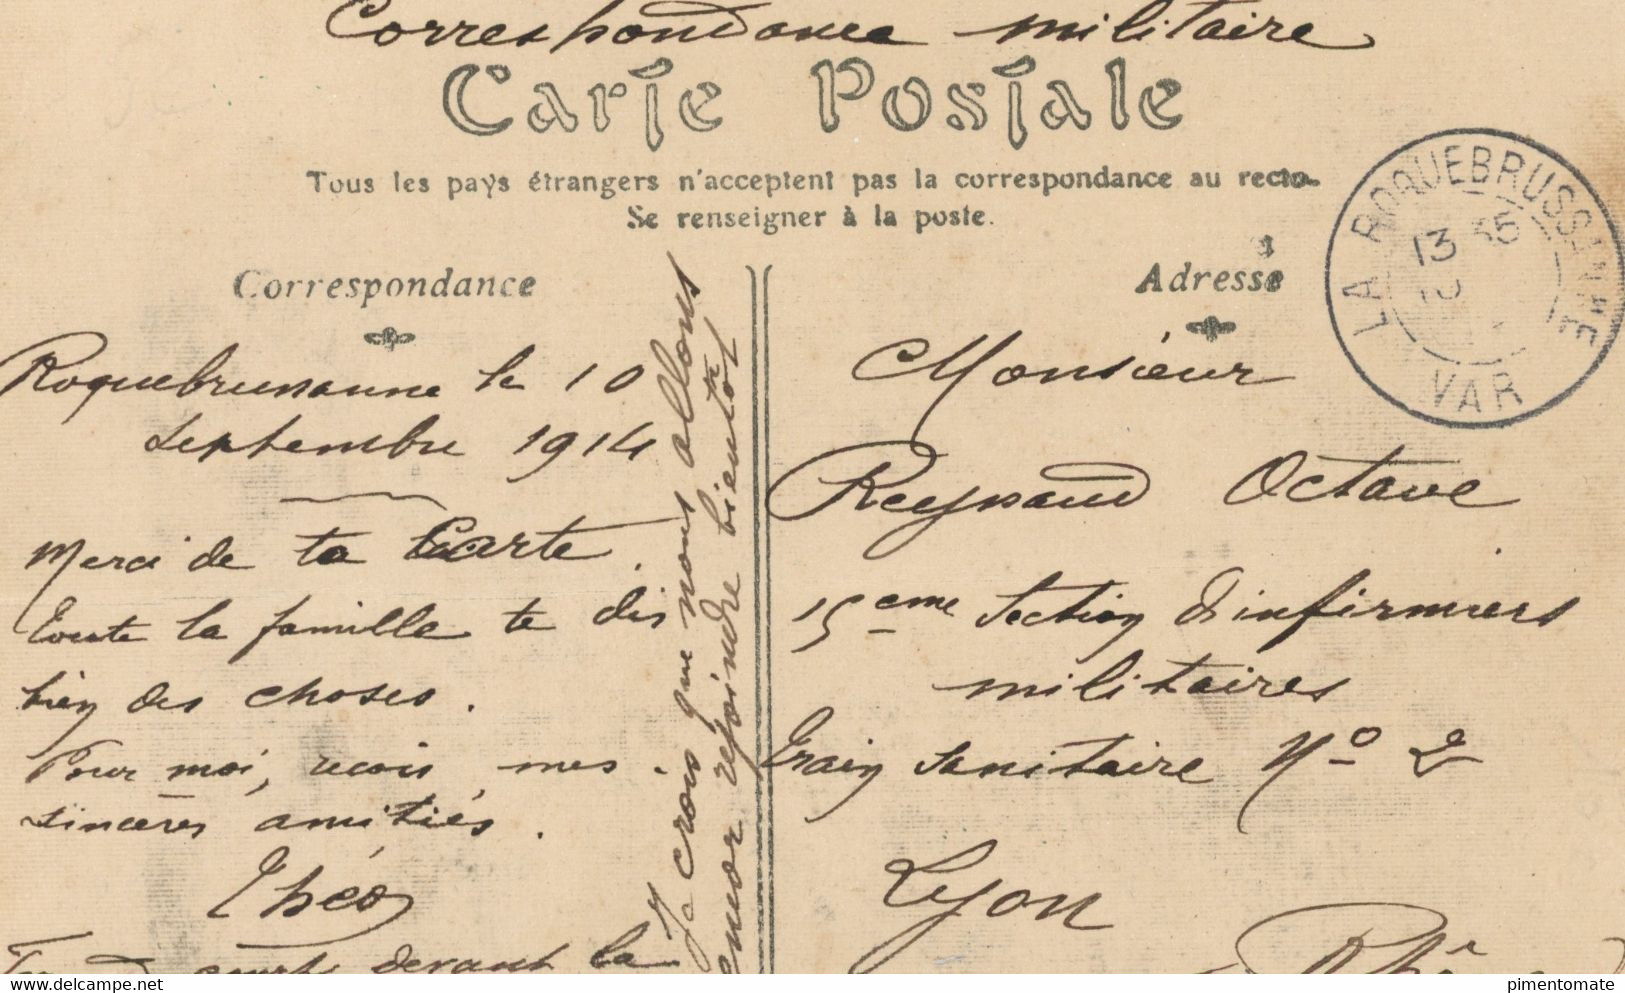 Correspondance militaire
Carte Postale
Tous les pays étrangers n'acceptent pas la correspondance au recto.
Se renseigner à la poste.
Correspondance
Adresse
LA ROQUEBRUSSANNE
13 35
10
VAR
Roquebrussanne le 10
septembre 1914
Merci de ta Carte.
Toute la famille te dis
bien des choses.
Pour moi, reçois mes
sincères amitiés.
Théo
devant la
Je crois que nous allons
rejoindre bientôt
Monsieur
Reynaud Octave
15eme Section d'infirmiers
militaires
Train sanitaire No 2
Lyon
Rhône
www.delcampe.net
pimentomate